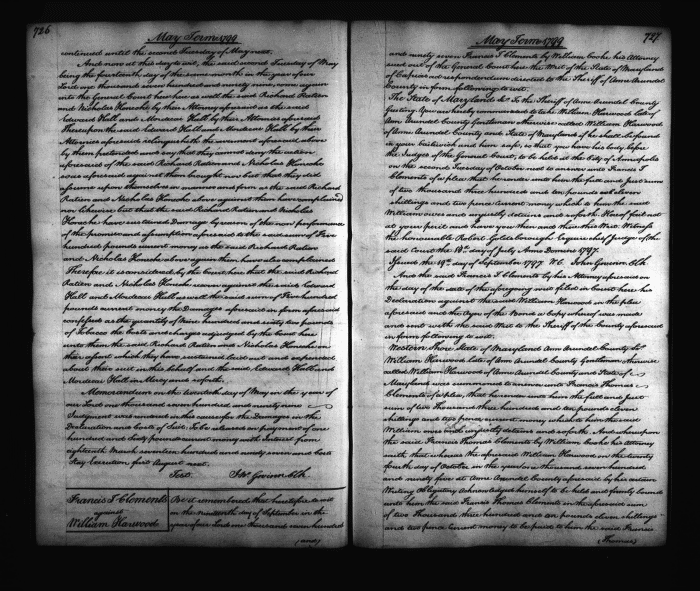 726
May Term 1799
continued until the second Tuesday of May next.
And now at this day to wit, the said second Tuesday of May
being the fourteenth day of the same month in the year of our
Lord one thousand seven hundred and ninety nine, come again
into the General Court here as well the said Richard Ratien
and Nicholas Konecke by their Attorney aforesaid as the said
Edward Hall and Mordecai Hall by their Attornies aforesaid
Thereupon the said Edward Hall and Mordecai Hall by their
Attornies aforesaid relinquish the averment aforesaid above
by them pretended and say that they cannot deny the action
aforesaid of the said Richard Ratien and Nicholas Konecke
so as aforesaid against them brought nor but that they did
assume upon themselves in manner and form as the said Richard
Ratien and Nicholas Konecke above against them have complained
nor likewise but that the said Richard Ratien and Nicholas
Konecke have sustained Damage by reason of the non performance
of the promise and assumption aforesaid to the said sum of Five
hundred pounds current money as the said Richard Ratien
and Nicholas Konecke above against them have also complained
Therefore it is considered by the Court here that the said Richard
Ratien and Nicholas Konecke recover against the said Edward
Hall and Mordecai Hall as well the said sum of Five hundred
pounds current money the Damages aforesaid in form aforesaid
confessed as the quantity of Nine hundred and sixty two pounds
of Tobacco the Costs and charges adjudged by the Court here
unto them the said Richard Ratien and Nicholas Konecke on
their assent which they have sustained laid out and expended
about their suit in this behalf and the said Edward Hall and
Mordecai Hall in Mercy and so forth.
Memorandum on the twentieth day of May in the year of
our Lord one thousand seven hundred and ninety nine
Judgment was entered in this cause for the Damages in the
Declaration and Costs of Suit. To be released on payment of one
hundred and sixty pounds current money with interest from
eighteenth March seventeen hundred and ninety seven and Costs
Stay Execution first August next.
Test. Jno Gwinn Clk
Francis T Clements
against
William Harwood
Be it remembered that heretofore to wit
on the nineteenth day of September in the
year of our Lord one thousand seven hundred
(and)
727
May Term 1799
and ninety seven Francis T Clements by William Cooke his Attorney
sued out of the General Court here the Writ of the State of Maryland
of Capias ad respondendum directed to the Sheriff of Ann Arundel
County in form following to wit.
The State of Maryland to the Sheriff of Ann Arundel County
Greeting. You are hereby commanded to take William Harwood late of
Ann Arundel County Gentleman otherwise called William Harwood
of Anne Arundel County and State of Maryland if he shall be found
in your bailiwick and him safe, so that you have his body before
the Judges of the General Court, to be held at the City of Annapolis
on the second Tuesday of October next to answer unto Francis T
Clements of a plea that he render unto him the full and just sum
of two thousand three hundred and ten pounds eleven
shillings and two pence current money which to him the said
William owes and unjustly detains and so forth. Hereof fail not
at your peril and have you then and there this Writ. Witness
the honourable Robert Goldsborough Esquire chief Judge of the
said Court the 14th day of July Anno Domini 1797.
Issued the 19th day of September 1797. WC John Gwinn Clk
And the said Francis T Clements by his Attorney aforesaid on
the day of the date of the aforegoing writ filed in Court here his
Declaration against the said William Harwood in the plea
aforesaid and the Oyer of the Bond a Copy whereof was made
and sent with the said Writ to the Sheriff of the County aforesaid
in form following to wit.
Western Shore State of Maryland Ann Arundel County Sct
William Harwood late of Ann Arundel County Gentleman otherwise
called William Harwood of Ann Arundel County and State of
Maryland was summoned to answer unto Francis Thomas
Clements of a plea, that he render unto him the full and just
sum of two thousand three hundred and ten pounds eleven
shillings and two pence current money which to him the said
William owes and unjustly detains and so forth. And whereupon
the said Francis Thomas Clements by William Cooke his Attorney
saith that whereas the aforesaid William Harwood on the twenty
fourth day of October in the year one thousand seven hundred
and ninety five at Anne Arundel County aforesaid by his certain
Writing Obligatory Acknowledged himself to be held and firmly bound
unto him the said Francis Thomas Clements in the aforesaid sum
of two Thousand three hundred and ten pounds eleven shillings
and two pence Current money to be paid to him the said Francis
(Thomas)